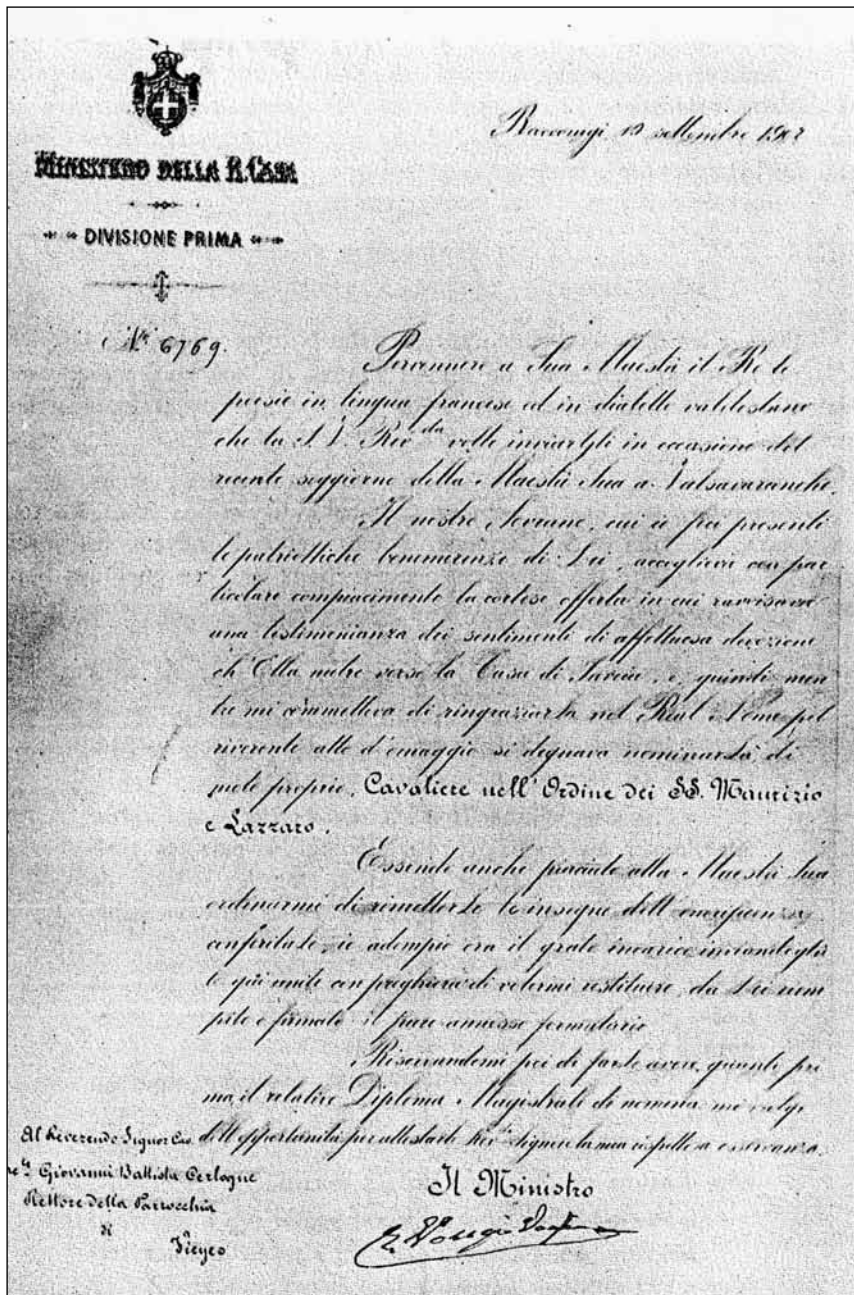 Racconigi 19 settembre 1902
MINISTERO DELLA R. CASA
DIVISIONE PRIMA
N.º 6769.
Pervennero a Sua Maestà il Re le
poesie in lingua francese ed in dialetto valdostano
che la S. V. Rev.da volle inviargli in occasione del
recente soggiorno della Maestà Sua a Valsavaranche.
Il nostro Sovrano, cui è poi presenti
le patriottiche benemerenze di Lei, accoglieva con par
ticolare compiacimento la cortese offerta in cui ravvisava
una testimonianza dei sentimenti di affettuosa devozione
ch'Ella nutre verso la Casa di Savoia, e, quindi men
tre mi commetteva di ringraziarla nel Real Nome pel
riverente atto d'omaggio si degnava nominarla, di
moto proprio, Cavaliere nell'Ordine dei SS. Maurizio
e Lazzaro.
Essendo anche piaciuto alla Maestà Sua
ordinarmi di rimetterle le insegne dell'onorificenza
conferitale, io adempio ora il grato incarico inviandogliele
qui unite con preghiera di volermi restituire, da Lei riem
pito e firmato il pure annesso formulario
Riservandomi poi di farle avere, quanto pri
ma, il relativo Diploma Magistrale di nomina mi valgo
dell'opportunità per attestarle Rev. Signore la mia rispettosa osservanza.
Al Reverendo Signor Cav.
Giovanni Battista Cerlogne
Rettore della Parrocchia
di
Vieyes
Il Ministro